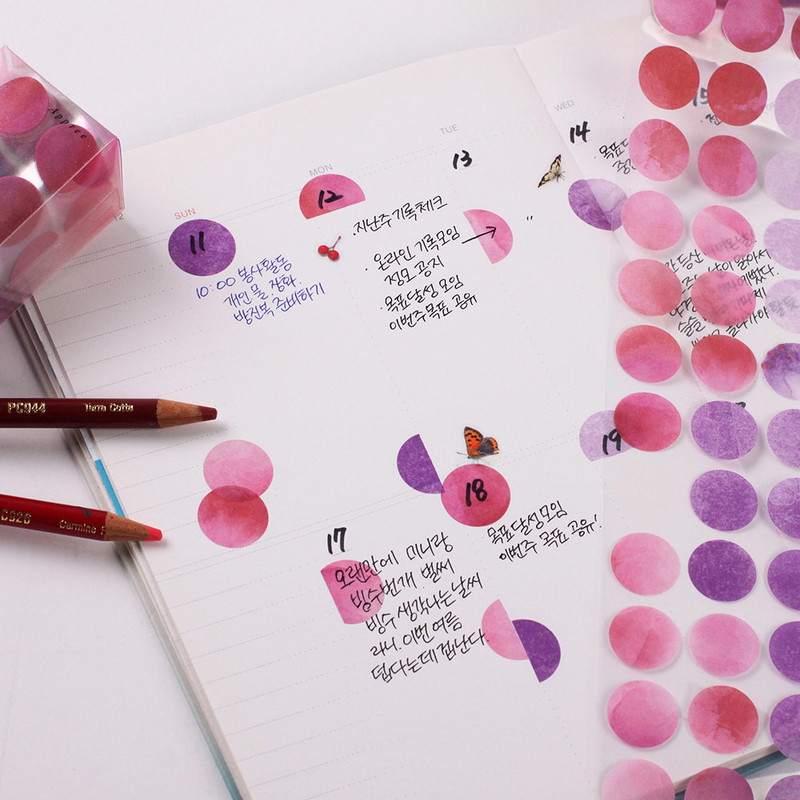 Appree
12
SUN
MON
TUE
WED
11
10:00 봉사활동
개인물 장화.
방진복 준비하기
12
·지난주 기록체크
·온라인 기록모임
정모 공지
·목표달성 모임
이번주 목표 공유
13
"
14
15
17
오랜만에 미니랑
빙수번개 벌써
빙수 생각나는 날씨
라니. 이번 여름
덥다는데 겁난다.
18
목표달성모임
이번주 목표 공유!
19
PC944 Terra Cotta
PC926 Carmine